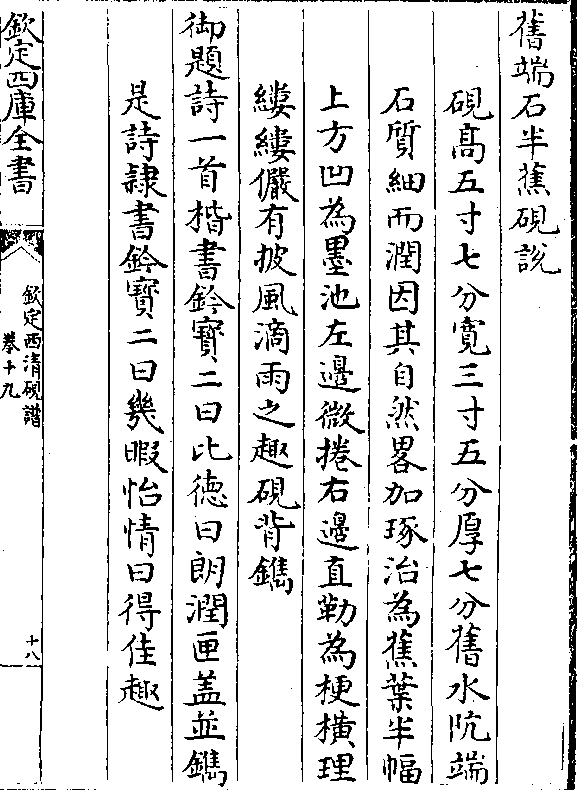 舊端石半蕉硯說
硯髙五寸七分寛三寸五分厚七分舊水阬端
石質細而潤因其自然畧加琢治為蕉葉半幅
上方凹為墨池左邉微捲右邉直勒為梗横理
縷縷儼有披風滴雨之趣硯背鐫
御題詩一首楷書鈐寶二曰比徳曰朗潤匣盖並鐫
是詩隷書鈐寶二曰幾暇怡情曰得佳趣
欽定四庫全書
欽定西清硯譜
卷十九
十八